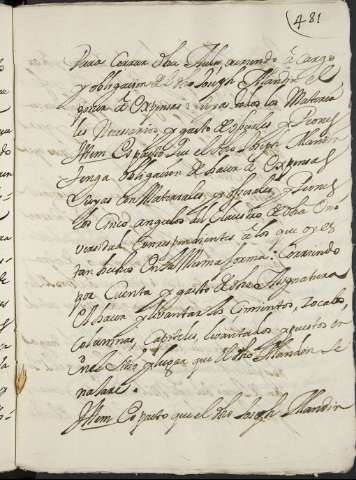 481
Para cerrar dha obra, corriendo a cargo
y obligacion de dho Joseph Mandin el
poner a expensas suyas todos los Materia
les Necesarios, y gasto de oficiales y Peones
Ittem es pacto que el dho Joseph Mandin
tenga obligacion de hacer a expensas
suyas en Materiales, y oficiales, y Peones
los cinco angulos del Claustro de dha Uni
versidad correspondientes a los que oy es
tan hechos en la misma forma: Corriendo
por cuenta y gasto de dha
el hacer y lebantar los cimientos, zocalos,
columnas, capiteles, levantados y puestos en
en el sitio, y lugar que el dho Mandin se
ñalare.
Ittem es pacto que el dho Joseph Mandin